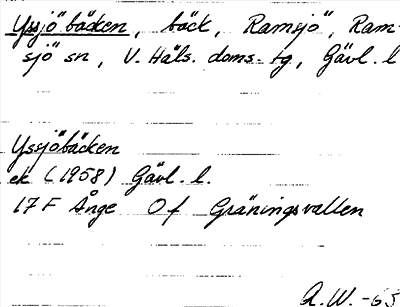 Yssjöbäcken, bäck, Ramsjö, Ram-
sjö sn, V. Häls. doms.tg, Gävl. l
Yssjöbäcken
ek (1958) Gävl. l.
17 F Ånge Of Gräningsvallen
A.W. -65